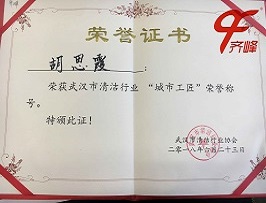 齐峰
荣誉证书
胡思霞:
荣获武汉市清洁行业“城市工匠”荣誉称
号。
特颁此证!
武汉市清洁行业协会
二零一八年六月二十三日